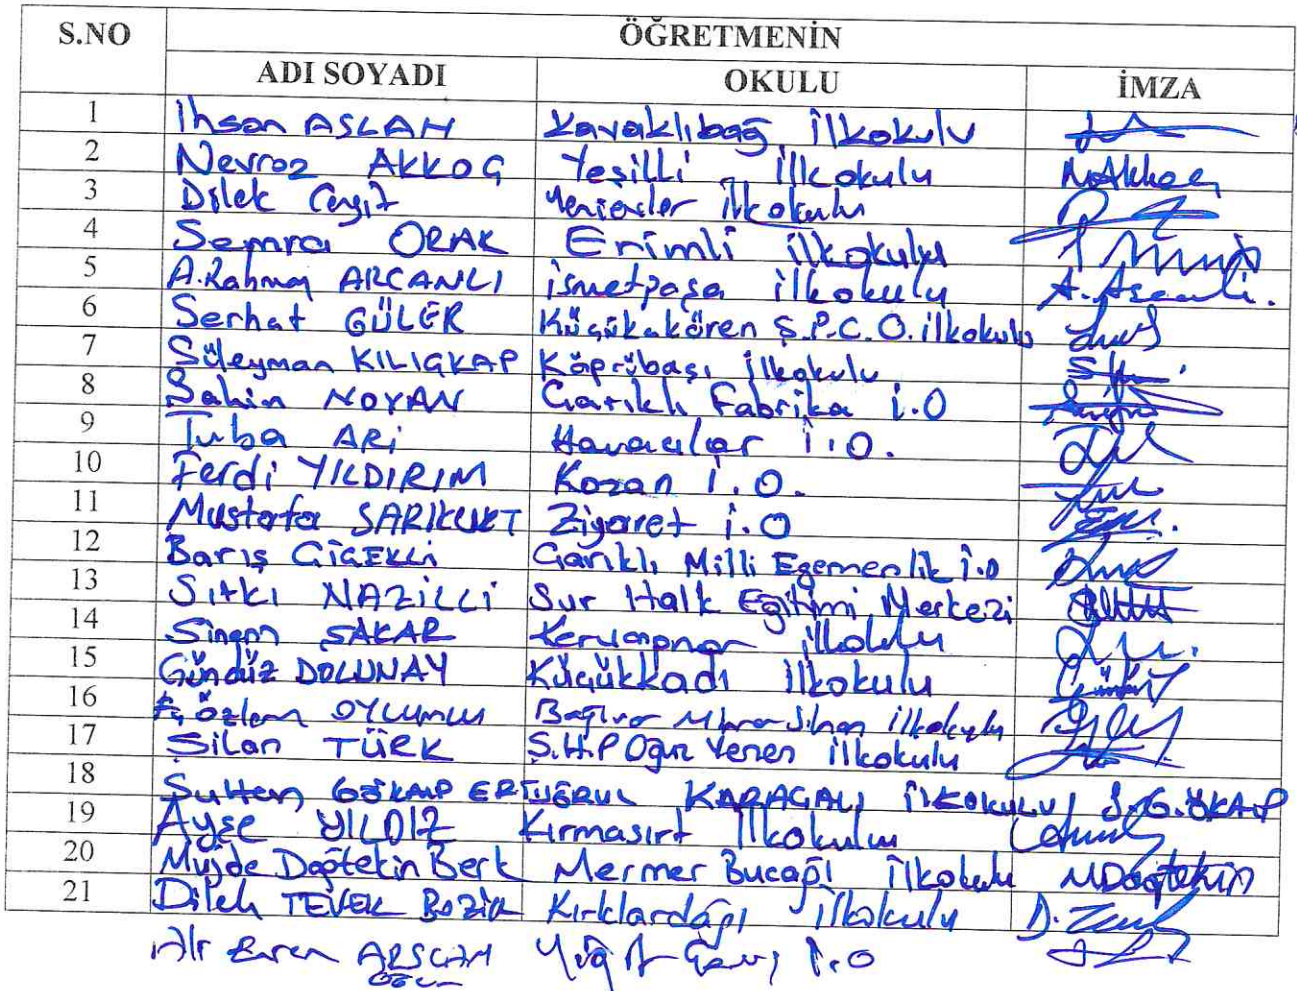 S.NO ÖĞRETMENİN
ADI SOYADI OKULU İMZA
1 İhsan ASLAN Kavaklıbağ İlkokulu
2 Nevroz AKKOÇ Yeşilli İlkokulu N.Akkoç
3 Dilek Ceyit Yenievler İlkokulu
4 Semra ORAK Erimli ilkokulu
5 A.Rahman ARCANLI ismetpaşa ilkokulu A. Arcanlı.
6 Serhat GÜLER Küçükakören Ş.P.C.O. ilkokulu
7 Süleyman KILIÇKAP Köprübaşı ilkokulu
8 Şahin NOYAN Çarıklı Fabrika İ.O
9 Tuba ARİ Havacılar İ.O.
10 Ferdi YILDIRIM Kozan İ.O.
11 Mustafa SARIKURT Ziyaret İ.O
12 Barış ÇİÇEKLİ Çarıklı Milli Egemenlik İ.O
13 Sıtkı NAZİLLİ Sur Halk Eğitimi Merkezi
14 Sinem SAKAR ilkokulu
15 Gündüz DOLUNAY Küçükkadı İlkokulu
16 Özlem OYLUMLU Bağıvar Mimar Sinan ilkokulu
17 Şilan TÜRK Ş.H.P Ogün Yenen İlkokulu
18 Sultan GÖKALP ERTUĞRUL KARAÇALI İLKOKULU S.GÖKALP
19 Ayşe YILDIZ Kırmasırt İlkokulu
20 Müjde Dağtekin Berk Mermer Bucağı İlkokulu M.Dağtekin
21 Dilek TEVEK Kırklardağı İlkokulu
Ali Eren İ.O